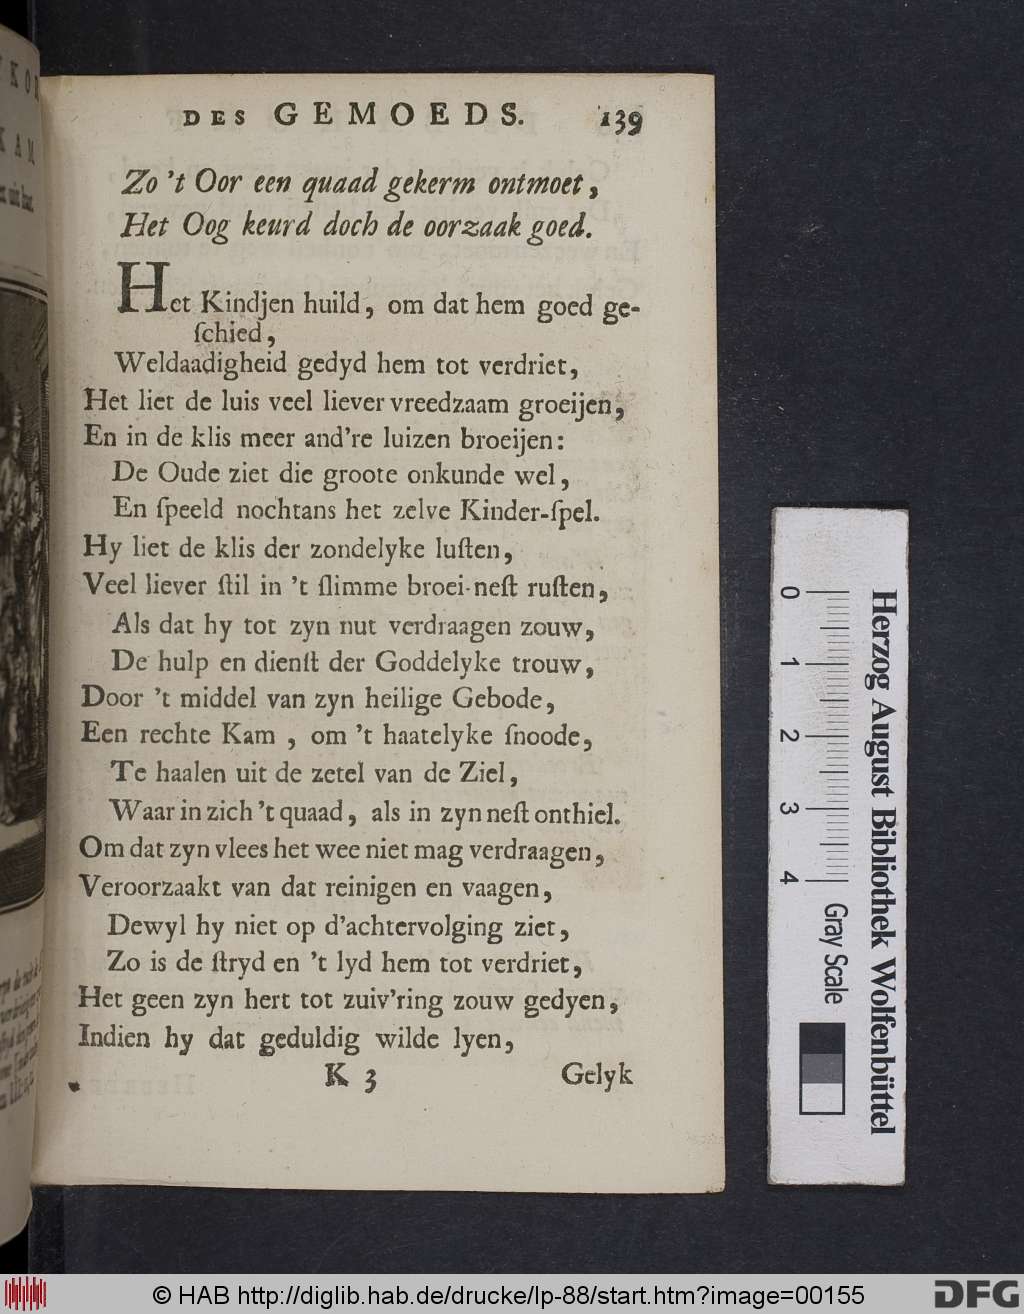 DES GEMOEDS. 139
Zo 't Oor een quaad gekerm ontmoet,
Het Oog keurd doch de oorzaak goed.
Het Kindjen huild, om dat hem goed ge-
ſchied,
Weldaadigheid gedyd hem tot verdriet,
Het liet de luis veel liever vreedzaam groeijen,
En in de klis meer and're luizen broeijen:
De Oude ziet die groote onkunde wel,
En ſpeeld nochtans het zelve Kinder-ſpel.
Hy liet de klis der zondelyke luſten,
Veel liever ſtil in 't ſlimme broei-neſt ruſten,
Als dat hy tot zyn nut verdraagen zouw,
De hulp en dienſt der Goddelyke trouw,
Door 't middel van zyn heilige Gebode,
Een rechte Kam, om 't haatelyke ſnoode,
Te haalen uit de zetel van de Ziel,
Waar in zich 't quaad, als in zyn neſt onthiel.
Om dat zyn vlees het wee niet mag verdraagen,
Veroorzaakt van dat reinigen en vaagen,
Dewyl hy niet op d'achtervolging ziet,
Zo is de ſtryd en 't lyd hem tot verdriet,
Het geen zyn hert tot zuiv'ring zouw gedyen,
Indien hy dat geduldig wilde lyen,
K 3 Gelyk
0 1 2 3 4
Herzog August Bibliothek Wolfenbüttel
Gray Scale
© HAB http://diglib.hab.de/drucke/lp-88/start.htm?image=00155
DFG